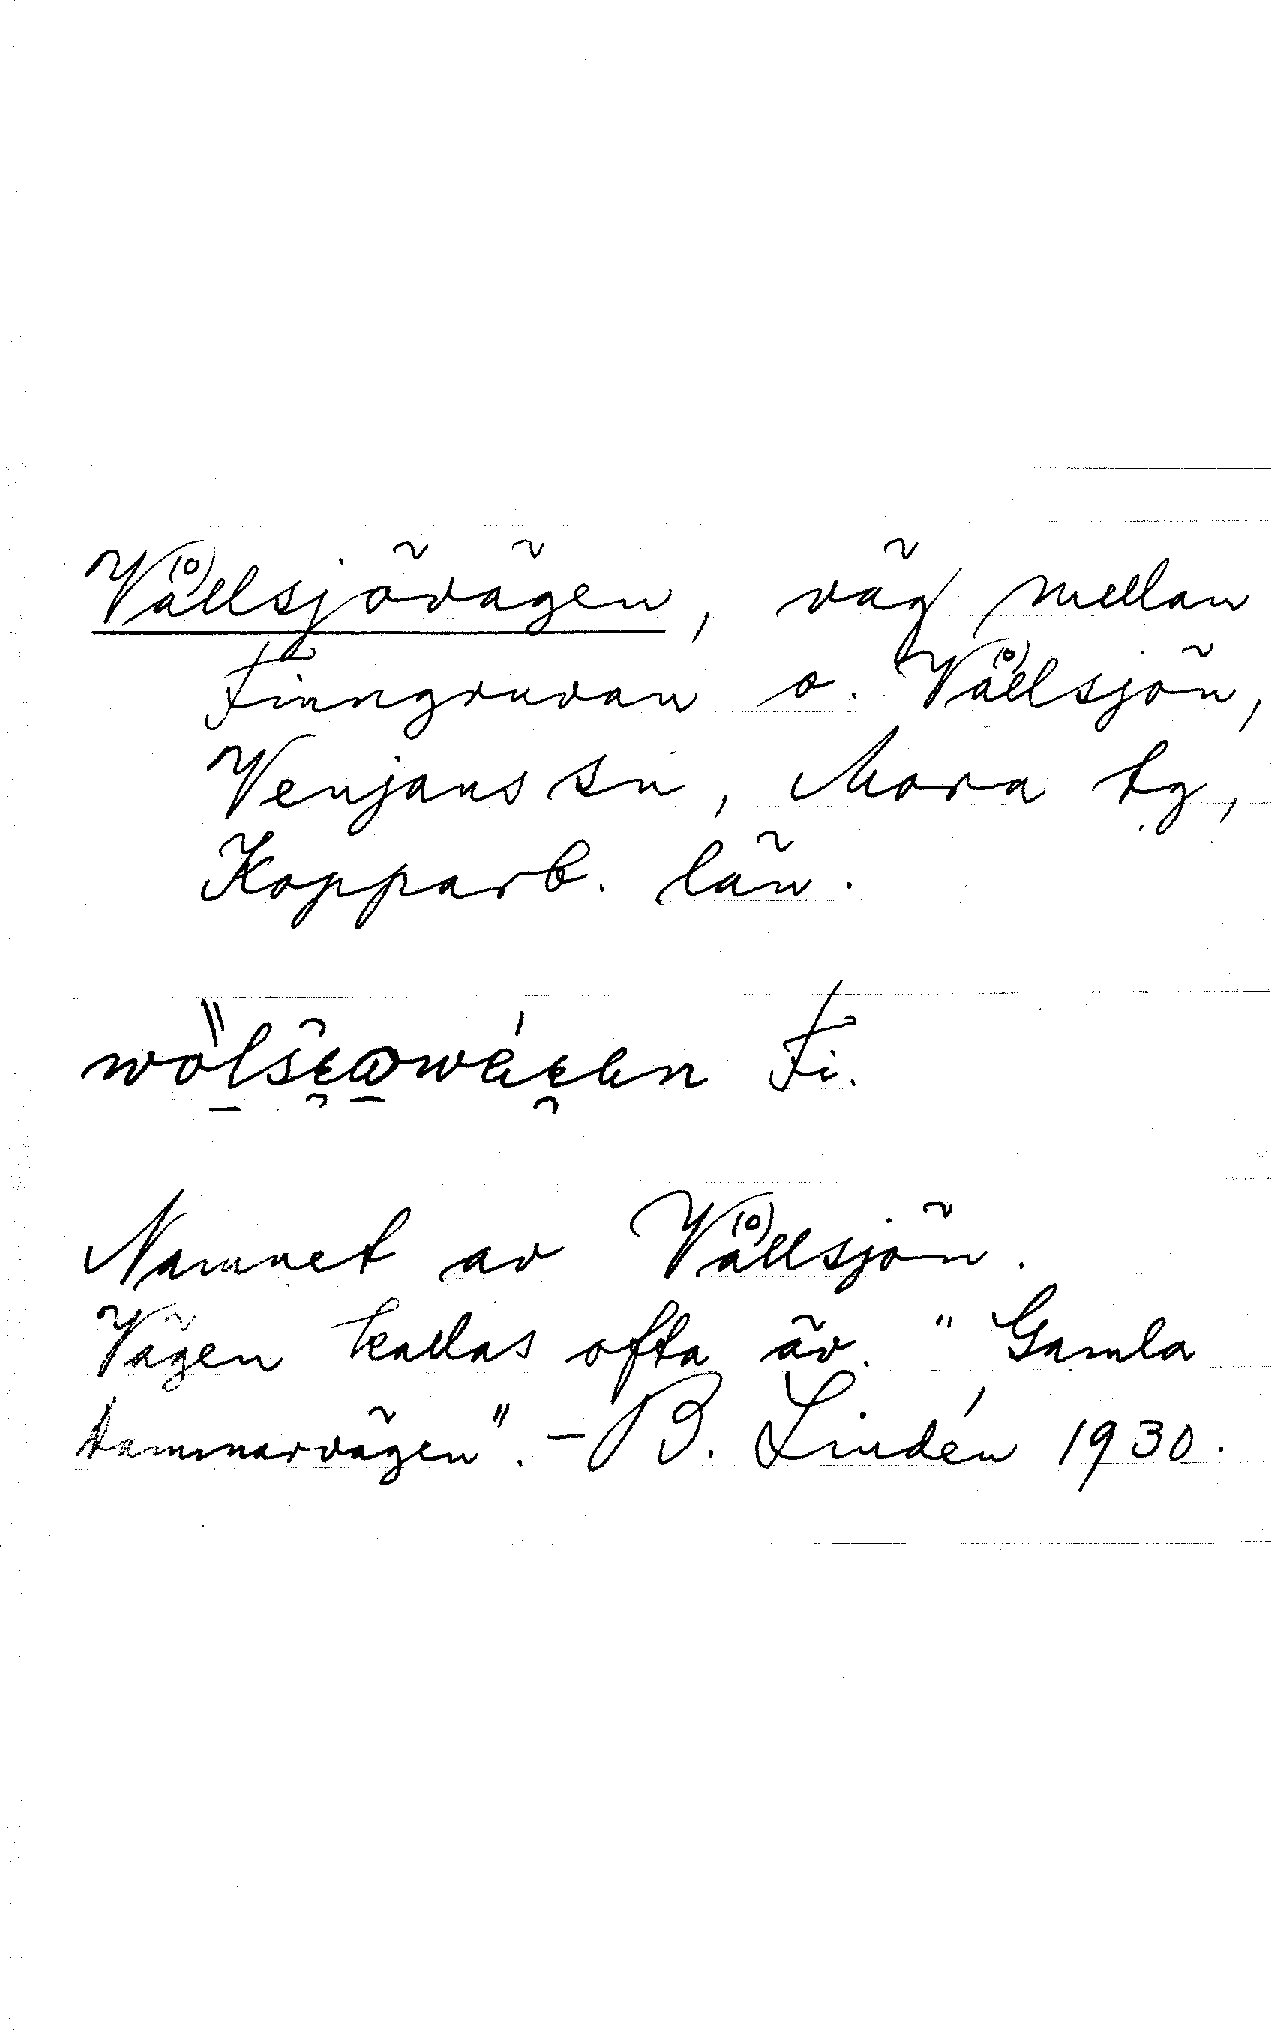 Vå(o)llsjövägen, väg mellan
Finngruvan o. Vå(o)llsjön,
Venjans sn, Mora tg,
Kopparb. län.
Fi.
Namnet av Vå(o)llsjön.
Vägen kallas ofta äv. "Gamla
dammarvägen". - B. Lindén 1930.